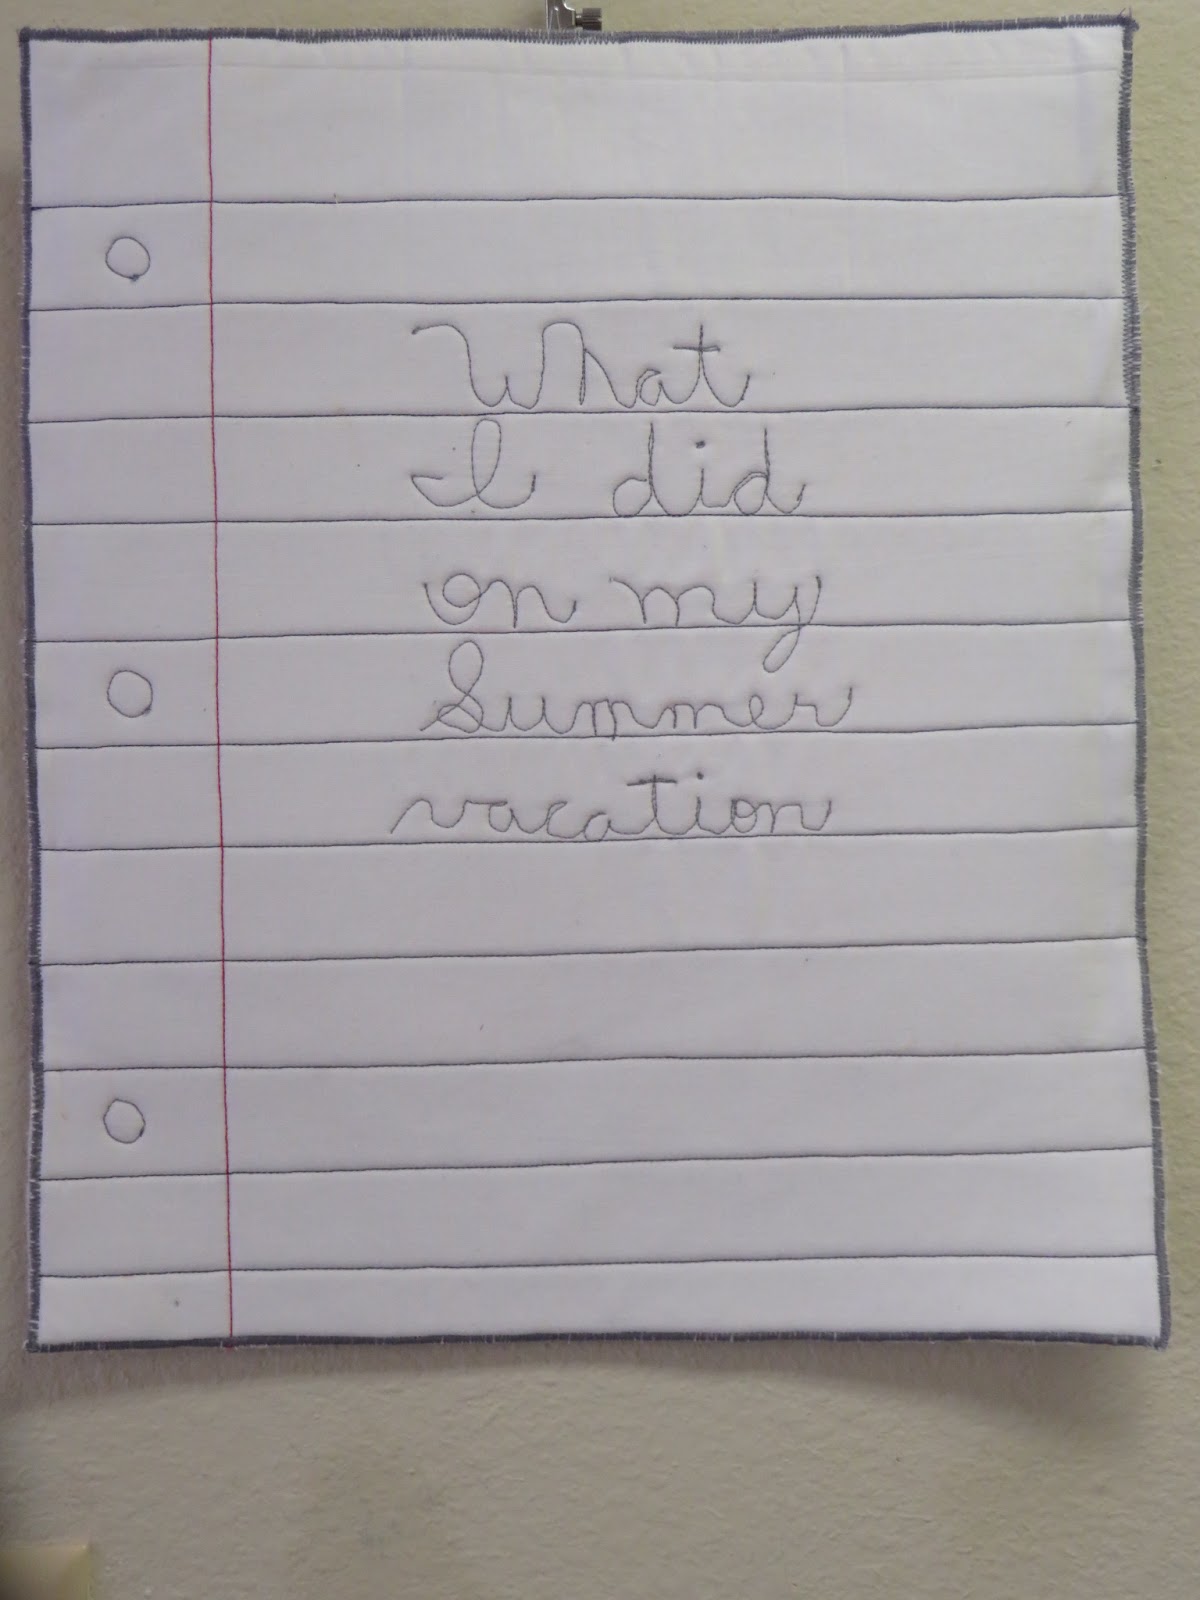 What
I did
on my
Summer
vacation